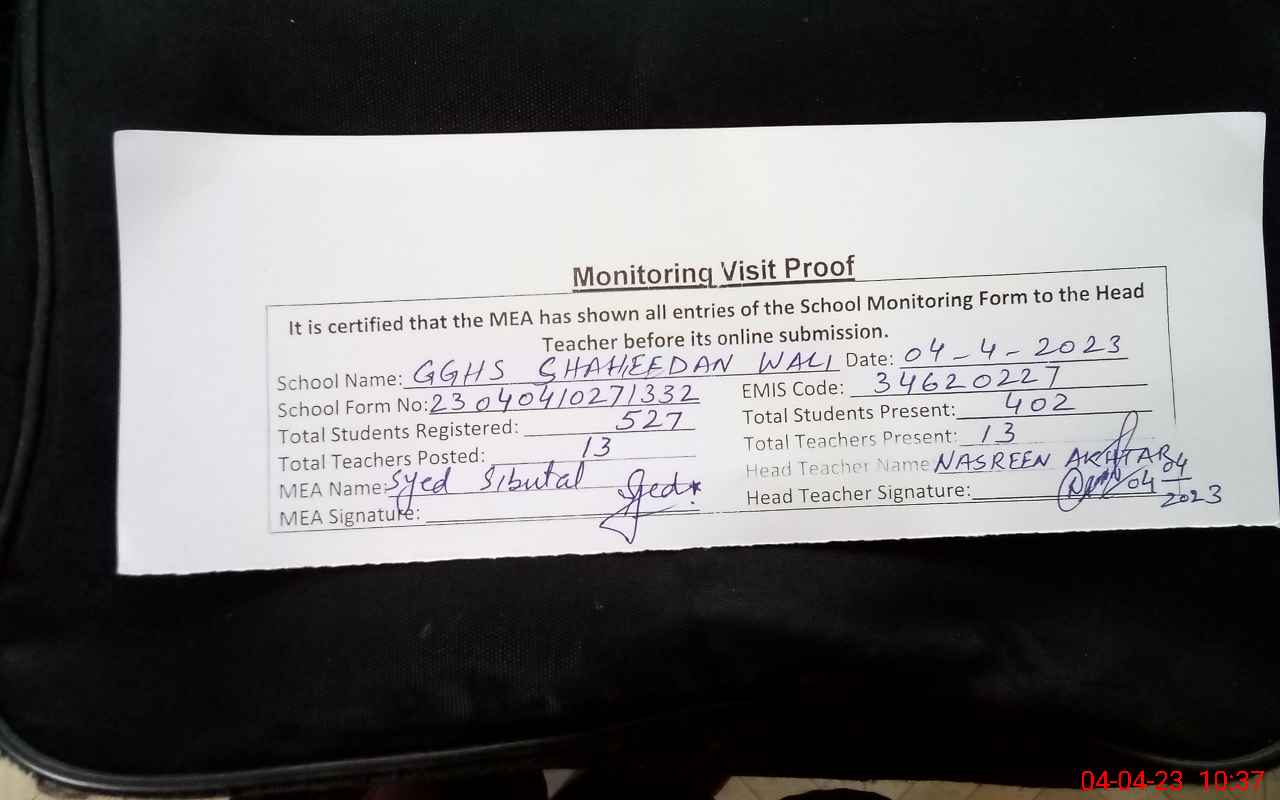 Monitoring Visit Proof
It is certified that the MEA has shown all entries of the School Monitoring Form to the Head
Teacher before its online submission.
School Name: GGHS SHAHEEDAN WALI Date: 04-4-2023
School Form No: 23040410271332 EMIS Code: 34620227
Total Students Registered: 527 Total Students Present: 402
Total Teachers Posted: 13 Total Teachers Present: 13
MEA Name: Syed Sibutal Head Teacher Name NASREEN AKHTAR
MEA Signature: Syed Head Teacher Signature: 04/04/2023
04-04-23 10:37